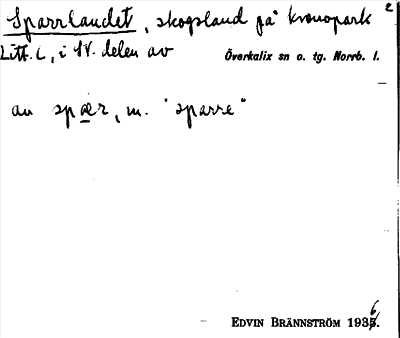 Sparrlandet, skogsland på kronopark 2
Litt. C, i N. delen av
Överkalix sn o. tg. Norrb. l.
av spær, m. "sparre"
EDVIN BRÄNNSTRÖM 1936.